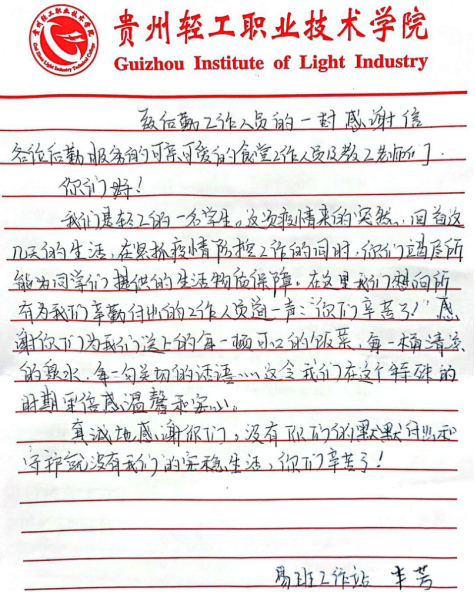 贵州轻工职业技术学院
Guizhou Institute of Light Industry
致后勤工作人员的一封感谢信
各位后勤服务的可亲可爱的食堂工作人员及教工老师们：
你们好！
我们是轻工的一名学生。这次疫情来的突然，回首这
几天的生活，在紧抓疫情防控工作的同时，你们竭尽所
能为同学们提供的生活物质保障。在这里我们想向所
有为我们辛勤付出的工作人员道一声："你们辛苦了！"感
谢你们为我们送上的每一顿可口的饭菜，每一桶清凉
的泉水，每一句关切的话语……这令我们在这个特殊的
时期里倍感温馨和安心。
真诚地感谢你们，没有你们的默默付出和
守护就没有我们的安稳生活，你们辛苦了！
易班工作站